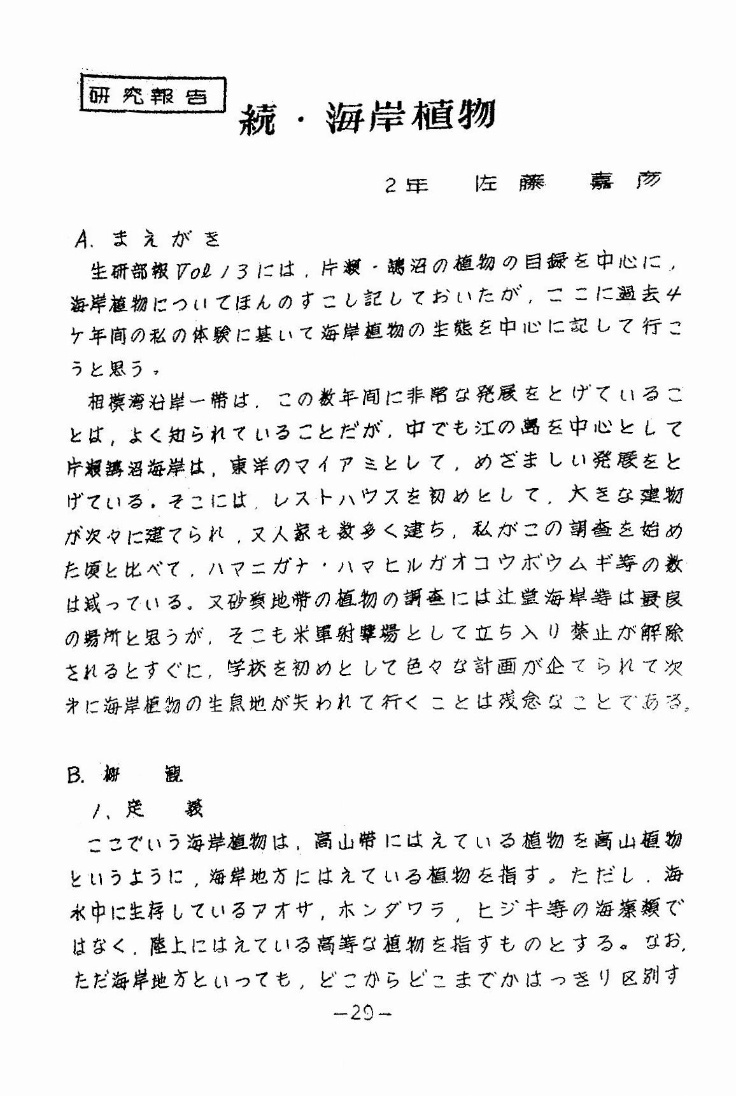 研究報告
続・海岸植物
2年 佐藤 嘉彦
A. まえがき
生研部報Vol13には,片瀬・鵠沼の植物の目録を中心に,
海岸植物についてほんのすこし記しておいたが,ここに過去4
ケ年間の私の体験に基いて海岸植物の生態を中心に記して行こ
うと思う。
相模湾沿岸一帯は,この数年間に非常な発展をとげているこ
とは,よく知られていることだが,中でも江の島を中心として
片瀬鵠沼海岸は,東洋のマイアミとして,めざましい発展をと
げている。そこには,レストハウスを初めとして,大きな建物
が次々に建てられ,又人家も数多く建ち,私がこの調査を始め
た頃と比べて,ハマニガナ・ハマヒルガオコウボウムギ等の数
は減っている。又砂質地帯の植物の調査には辻堂海岸等は最良
の場所と思うが,そこも米軍射撃場として立ち入り禁止が解除
されるとすぐに,学校を初めとして色々な計画が企てられて次
第に海岸植物の生息地が失われて行くことは残念なことである。
B. 概 観
1、定 義
ここでいう海岸植物は,高山帯にはえている植物を高山植物
というように,海岸地方にはえている植物を指す。ただし,海
水中に生存しているアオサ,ホンダワラ,ヒジキ等の海藻類で
はなく,陸上にはえている高等な植物を指すものとする。なお,
ただ海岸地方といっても,どこからどこまでかはっきり区別す
-29-